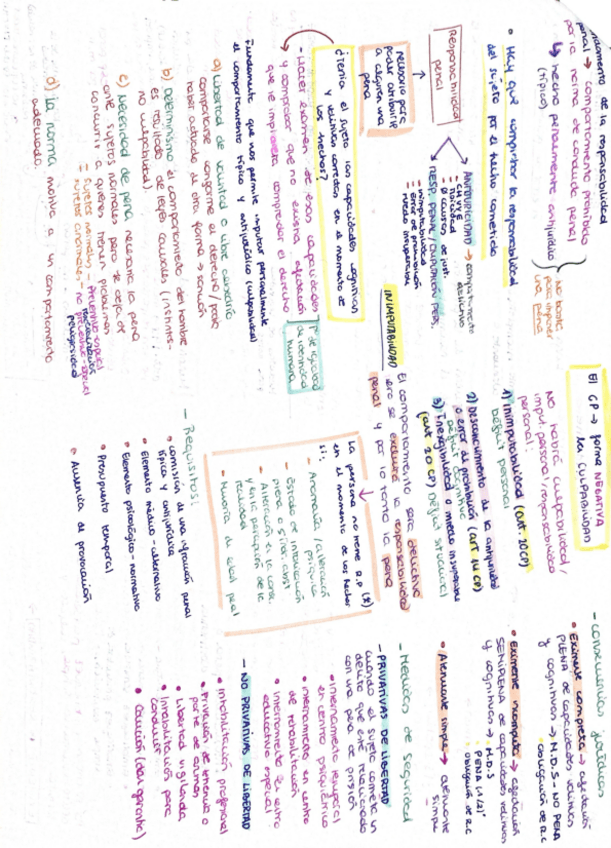 de la responsabilidad
penal → comportamiento prohibido
por la norma de conducta penal
↳ hecho penalmente antijurídico
(típico)
No basta
para imponer
una pena
• Hay que comprobar la responsabilidad
del sujeto por el hecho cometido
Responsabilidad
penal
ANTIJURICIDAD → comportamiento
delictivo
- Tipicidad
RESP. PENAL / IMPUTACIÓN PERS.
- inimputabilidad
- error de prohibición
- miedo insuperable
necesario para
poder atribuirle
a alguien una
pena
¿Tenía el sujeto las capacidades cognitivas
y volitivas correctas en el momento de
los hechos?
- Hacer examen de esas capacidades
y comprobar que no exista afectación
que le impidiera comprender el derecho
de dignidad
humana
Fundamento que nos permite imputar personalmente
el comportamiento típico y antijurídico (culpabilidad)
a) Libertad de voluntad o libre albedrío
comportarse conforme al derecho / pudo
haber actuado de otra forma → sanción
b) Determinismo el comportamiento del hombre
es resultado de leyes causales (instintos -
no culpabilidad)
c) Necesidad de pena necesaria la pena
ante sujetos normales pero se deja de
a quienes tienen problemas
- sujetos normales - prevención especial
- sujetos anormales - no prevención especial
peligrosidad
d) La norma motiva a un comportamiento
adecuado
El CP → forma NEGATIVA
la CULPABILIDAD
No habrá culpabilidad /
imput. personal / responsabilidad
personal:
1) Inimputabilidad (art. 20 CP)
Déficit personal
2) Desconocimiento de la antijuridicidad
o error de prohibición (art 14 CP)
Déficit cognitivo
3) Inexigibilidad o miedo insuperable
(art 20 CP) Déficit situacional
INIMPUTABILIDAD
El comportamiento será delictivo
pero se excluirá la responsabilidad
penal y por lo tanto la pena
La persona no tiene R.P. (*)
en el momento de los hechos
si:
- Anomalía / alteración
psíquica
- Estado de intoxicación
plena o sínd. abst
- Alteración en la
percepción de la
realidad
- Minoría de edad penal
- Requisitos:
• Comisión de una infracción penal
típica y antijurídica
• Elemento médico - alternativo
• Elemento psicológico - normativo
• Presupuesto temporal
• Ausencia de provocación
- Consecuencias jurídicas
• Eximente completa → afectación
PLENA de capacidades volitivas
y cognitivas → M.D.S - NO PENA
obligación de R.C
• Eximente incompleta → afectación
SEMIPLENA de capacidades volitivas
y cognitivas → M.D.S
PENA ↓ (1,2)º
obligación de R.C
• Atenuante simple → atenuante
simple
- Medidas de seguridad
- PRIVATIVAS DE LIBERTAD
cuando el sujeto comete un
delito que esté relacionado
con una pena de prisión
• Internamiento temporal
en centro psiquiátrico
• Internamiento en centro
de rehabilitación
• Internamiento en centro
educativo especial
- NO PRIVATIVAS DE LIBERTAD
• Inhabilitación profesional
• Privación de tenencia o
porte de armas
• Libertad vigilada
• Inhabilitación para
conducir
• Caución (dar garantía)